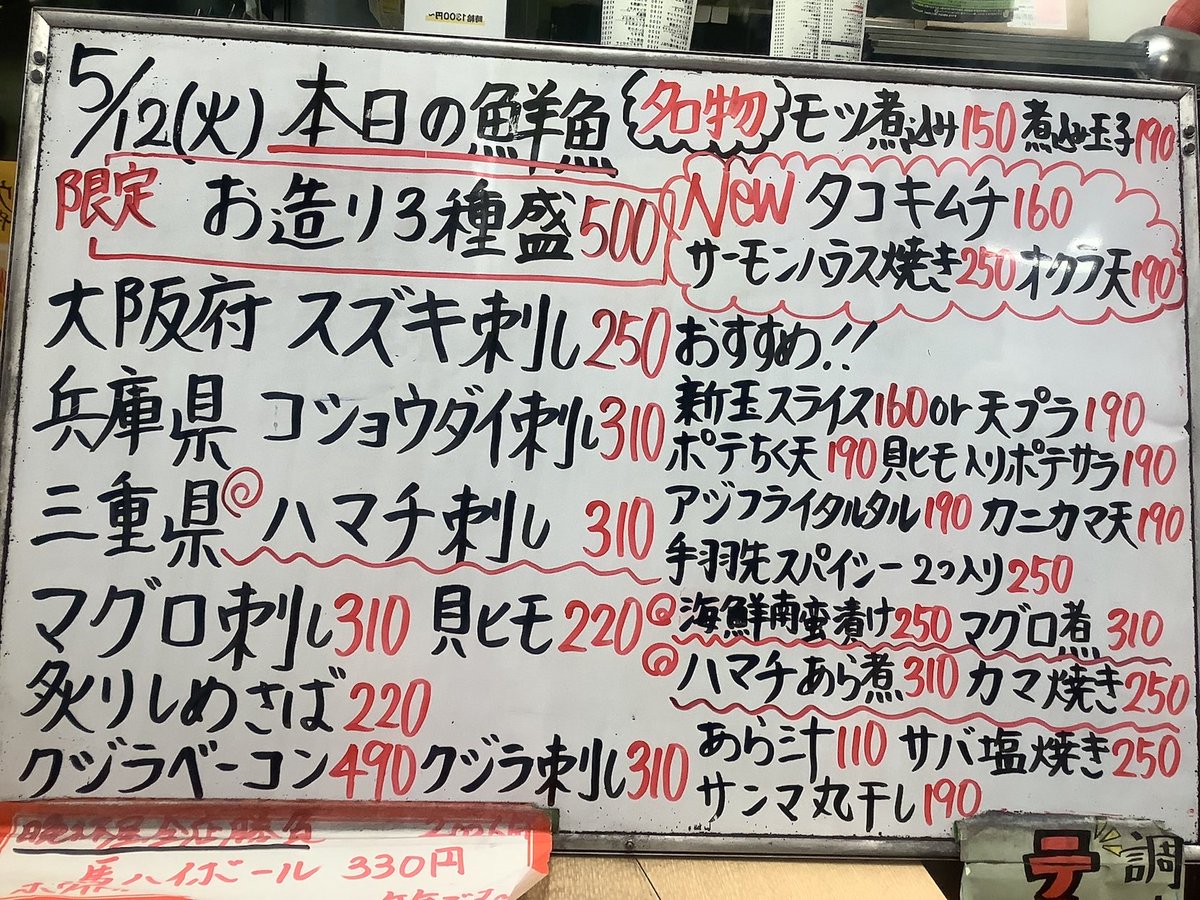 時給1300円~
5/12(火) 本日の鮮魚
限定 お造り3種盛500
大阪府 スズキ刺し250
兵庫県 コショウダイ刺し310
三重県 ハマチ刺し 310
マグロ刺し310 貝ヒモ220
炙りしめさば220
クジラベーコン490 クジラ刺し310
名物 モツ煮込み150 煮込み玉子190
New タコキムチ160
サーモンハラス焼き250 オクラ天190
おすすめ!!
新玉スライス160 or 天プラ190
ポテちく天190 貝ヒモ入りポテサラ190
アジフライタルタル190 カニカマ天190
手羽先スパイシー2つ入り250
海鮮南蛮漬け250 マグロ煮310
ハマチあら煮310 カマ焼き250
あら汁110 サバ塩焼き250
サンマ丸干し190
ハイボール 330円
調
テ